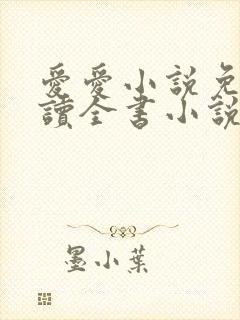 愛愛小說免
讀全書小說
墨小葉